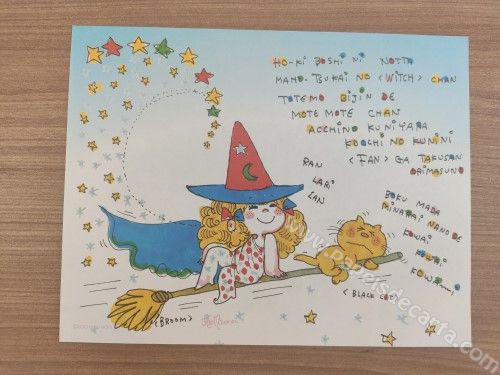 HO-KI BOSHI NI NOTTA
MAHO-TSUKAI NO <WITCH> CHAN
TOTEMO BIJIN DE
MOTE MOTE CHAN
ACCHINO KUNIYARA
KOCCHI NO KUNINI
<FAN> GA TAKUSAN
ORIMASUNO
RAN
LARI
LAN
BOKU MADA
MINARAI NANO DE
KOWAI
KOWAI
KOWAI
<BLACK CAT>
<BROOM>
www.papeisdecarta.com